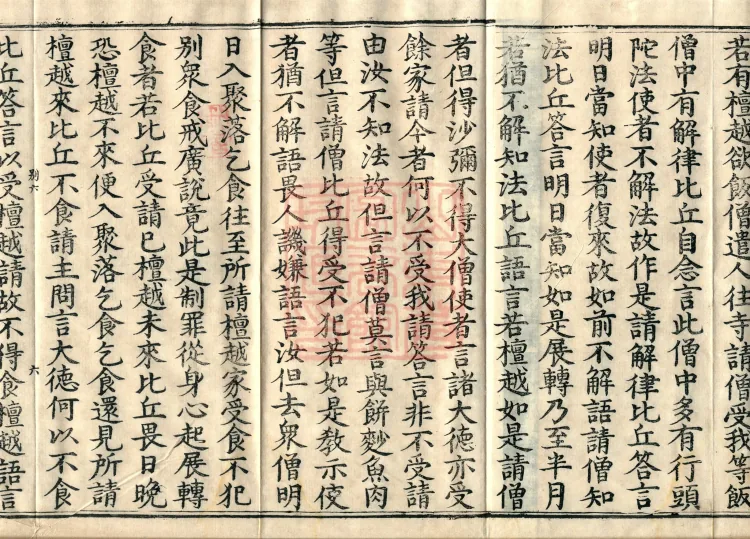 若有檀越欲飯僧遣人往寺請僧受我等飯
僧中有解律比丘自念言此僧中多有行頭
陀法使者不解法故作是請解律比丘答言
明日當知使者復來故如前不解語請僧知
法比丘答言明日當知如是展轉乃至半月
若猶不解知法比丘語言若檀越如是請僧
者但得沙彌不得大僧使者言諸大德亦受
餘家請今者何以不受我請答言非不受請
由汝不知法故但言請僧莫言與餅麨魚肉
等但言請僧比丘得受不犯若如是教示使
者猶不解語畏人譏嫌語言汝但去眾僧明
日入聚落乞食往至所請檀越家受食不犯
別眾食戒廣說竟此是制罪從身心起展轉
食者若比丘受請已檀越未來比丘畏日晚
恐檀越不來便入聚落乞食乞食還見所請
檀越來比丘不食請主問言大德何以不食
別六
六
比丘答言以受檀越請故不得食檀越語言